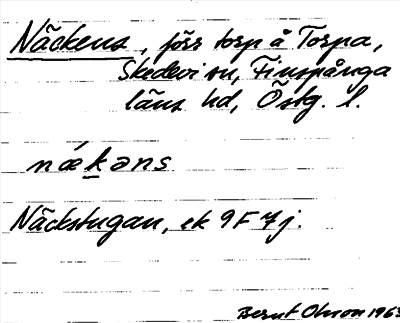 Näckens, förr torp å Torpa,
Skedevi sn, Finspånga
läns hd, Östg. l.
nǽkəns
Näckstugan, ek 9F 7j.
Bernt Olsson 1963